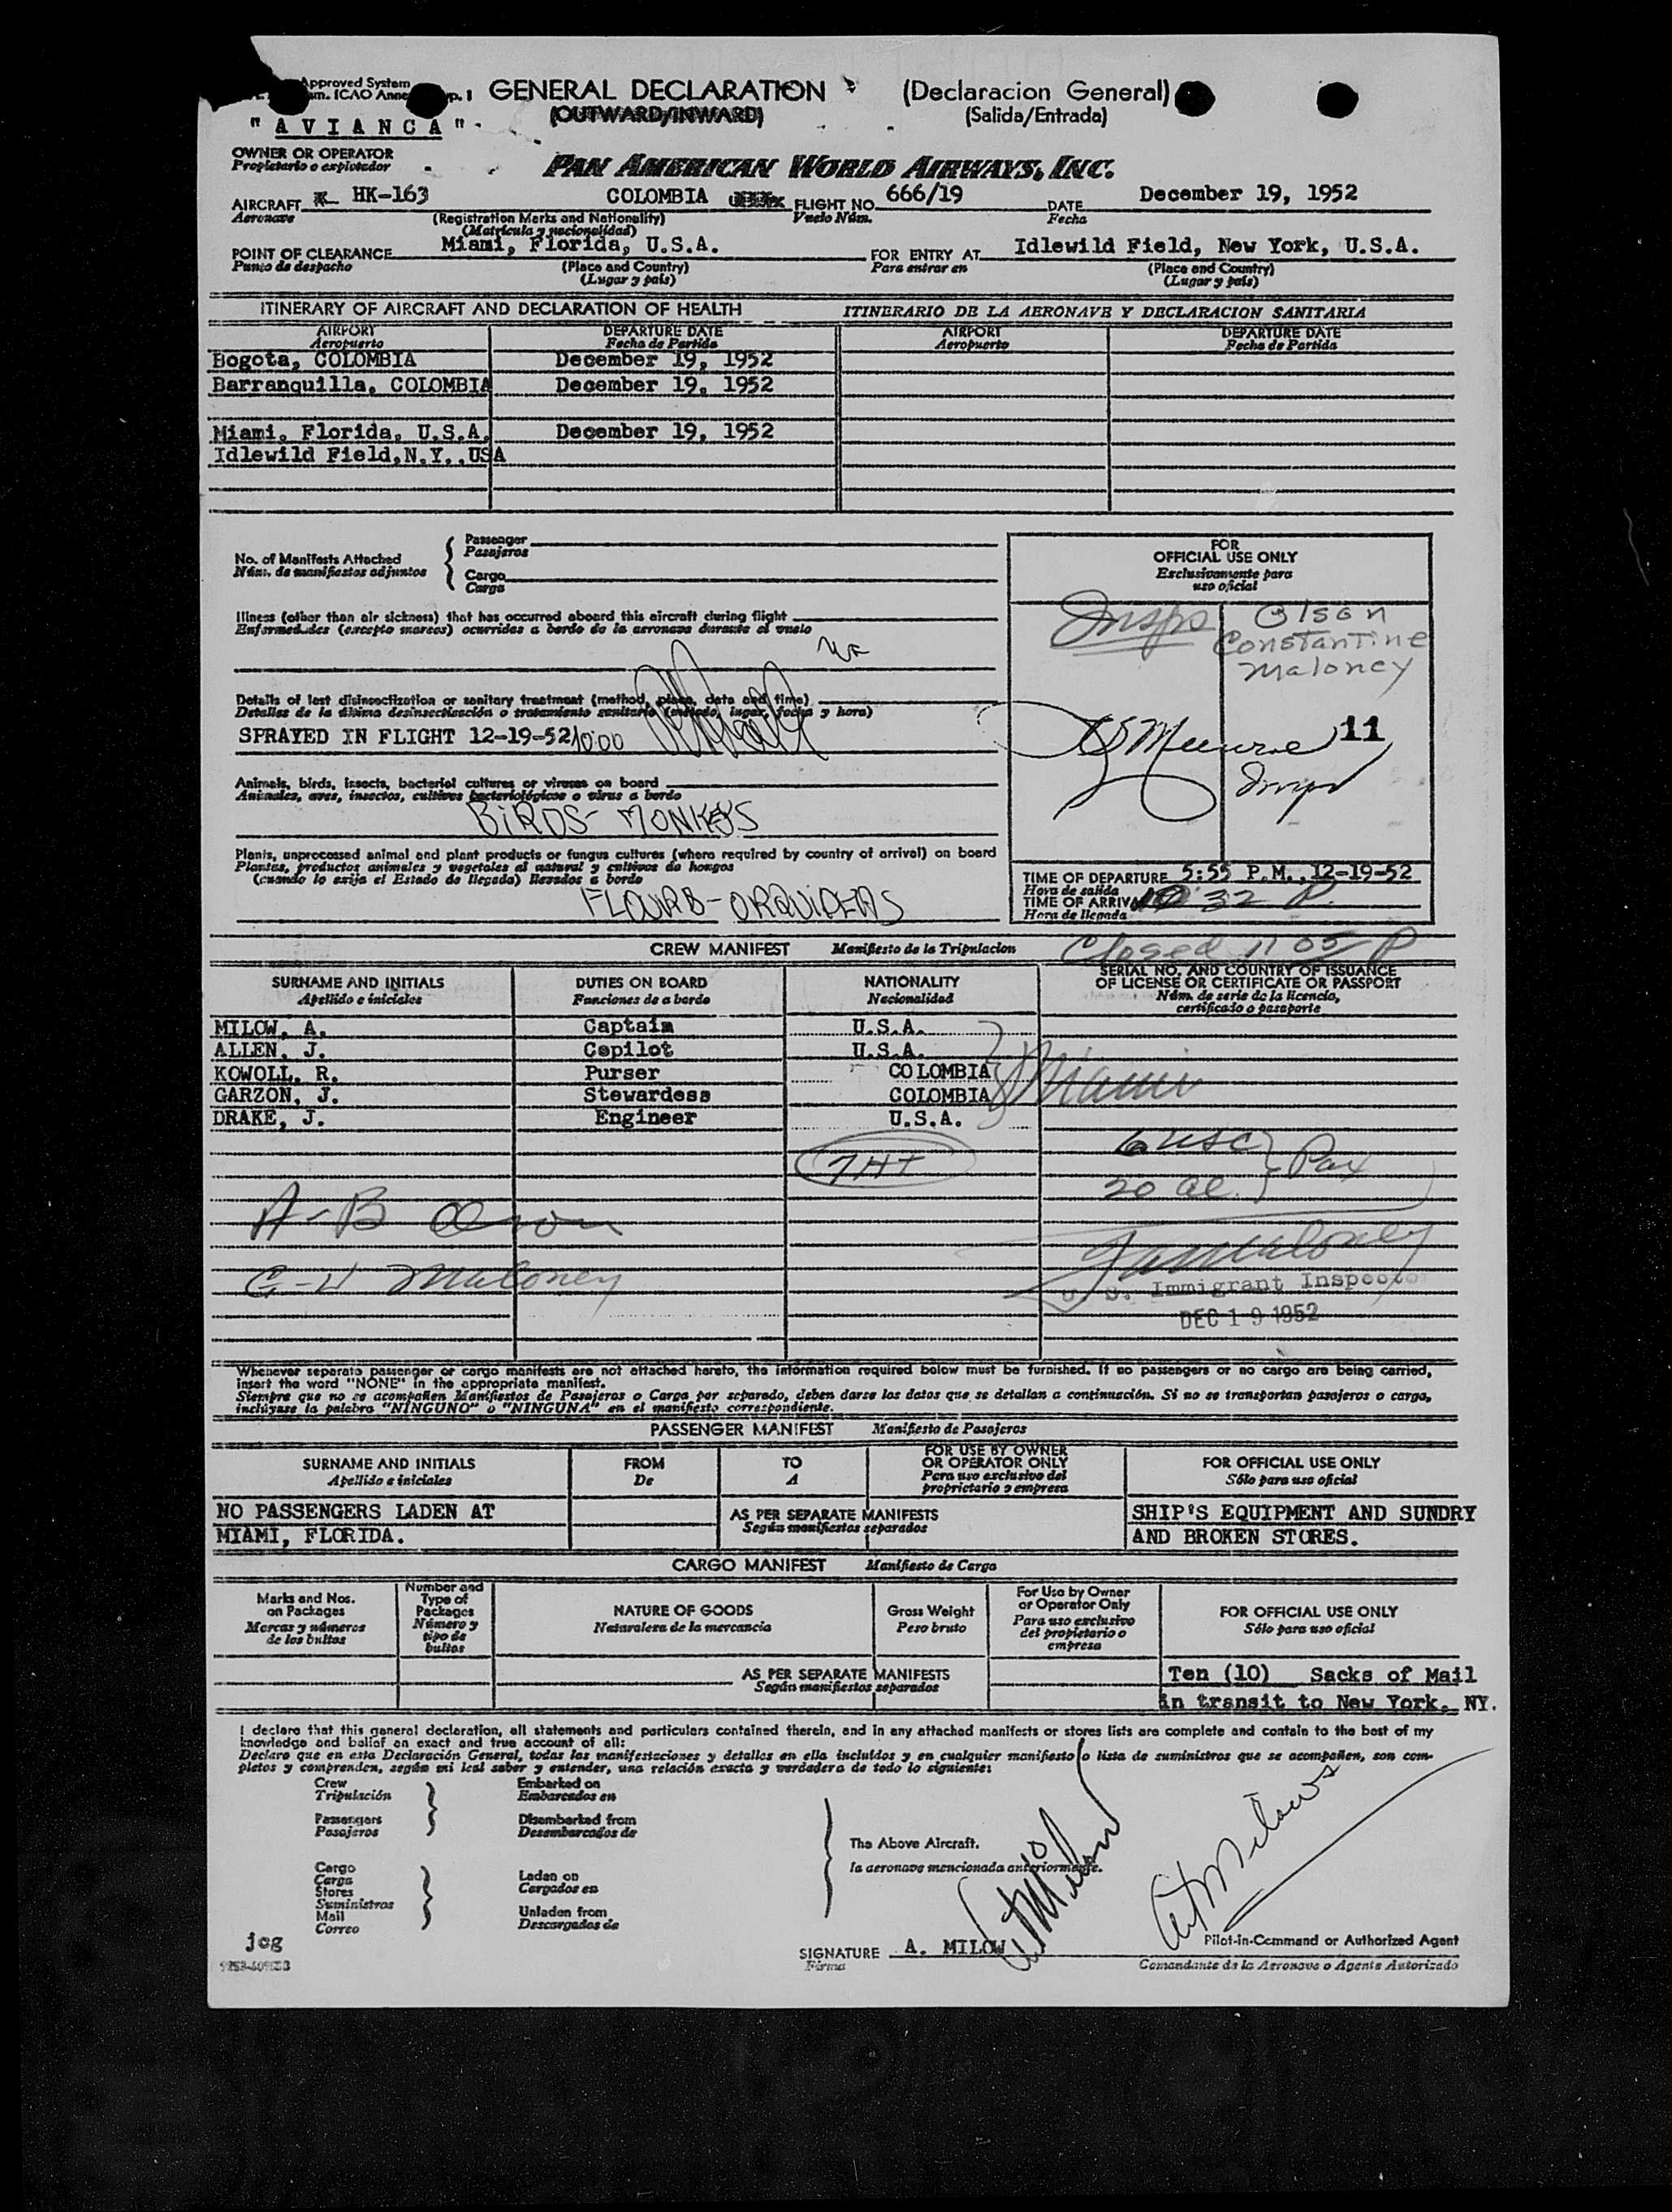 Approved System
ICAO Anne
p. 1
GENERAL DECLARATION
(Declaracion General)
(OUTWARD/INWARD)
(Salida/Entrada)
"AVIANCA"
OWNER OR OPERATOR
Propietario o explotador
PAN AMERICAN WORLD AIRWAYS, INC.
AIRCRAFT HK-163 COLOMBIA FLIGHT NO. 666/19 DATE December 19, 1952
Aeronave (Registration Marks and Nationality) Vuelo Núm. Fecha
(Matricula y nacionalidad)
POINT OF CLEARANCE Miami, Florida, U.S.A. FOR ENTRY AT Idlewild Field, New York, U.S.A.
Punto de despacho (Place and Country) Para entrar en (Place and Country)
(Lugar y país) (Lugar y país)
ITINERARY OF AIRCRAFT AND DECLARATION OF HEALTH ITINERARIO DE LA AERONAVE Y DECLARACION SANITARIA
AIRPORT DEPARTURE DATE AIRPORT DEPARTURE DATE
Aeropuerto Fecha de Partida Aeropuerto Fecha de Partida
Bogota, COLOMBIA December 19, 1952
Barranquilla, COLOMBIA December 19, 1952
Miami, Florida, U.S.A. December 19, 1952
Idlewild Field,N.Y.,USA
No. of Manifests Attached
Núm. de manifiestos adjuntos
Passenger
Pasajeros
Cargo
Carga
FOR
OFFICIAL USE ONLY
Exclusivamente para
uso oficial
Insps Olson
Constantine
Maloney
Illness (other than air sickness) that has occurred aboard this aircraft during flight
Enfermedades (excepto mareos) ocurridas a bordo de la aeronave durante el vuelo
Details of last disinsectization or sanitary treatment (method, place, date and time)
Detalles de la última desinsectización o tratamiento sanitario (método, lugar, fecha y hora)
SPRAYED IN FLIGHT 12-19-52 10:00
11
Animals, birds, insects, bacterial cultures or viruses on board
Animales, aves, insectos, cultivos bacteriológicos o virus a bordo
BIRDS- MONKEYS
Plants, unprocessed animal and plant products or fungus cultures (where required by country of arrival) on board
Plantas, productos animales y vegetales al natural y cultivos de hongos
(cuando lo exija el Estado de llegada) llevados a bordo
ORQUIDEAS
TIME OF DEPARTURE 5:55 P.M.,12-19-52
Hora de salida
TIME OF ARRIVAL 10 32 P.
Hora de llegada
Closed 11 05 P
CREW MANIFEST Manifiesto de la Tripulacion
SURNAME AND INITIALS DUTIES ON BOARD NATIONALITY SERIAL NO. AND COUNTRY OF ISSUANCE
OF LICENSE OR CERTIFICATE OR PASSPORT
Apellido e iniciales Funciones de a bordo Nacionalidad Núm. de serie de la licencia,
certificado o pasaporte
MILOW, A. Captain U.S.A.
ALLEN, J. Copilot U.S.A.
KOWOLL, R. Purser COLOMBIA
GARZON, J. Stewardess COLOMBIA
DRAKE, J. Engineer U.S.A.
Miami
6 USC
20 al. Pax
A-B Olson
Maloney
U. S. Immigrant Inspector
DEC 19 1952
Whenever separate passenger or cargo manifests are not attached hereto, the information required below must be furnished. If no passengers or no cargo are being carried,
insert the word "NONE" in the appropriate manifest.
Siempre que no se acompañen Manifiestos de Pasajeros o Carga por separado, deben darse los datos que se detallan a continuación. Si no se transportan pasajeros o carga,
inclúyase la palabra "NINGUNO" o "NINGUNA" en el manifiesto correspondiente.
PASSENGER MANIFEST Manifiesto de Pasajeros
SURNAME AND INITIALS FROM TO FOR USE BY OWNER OR OPERATOR ONLY FOR OFFICIAL USE ONLY
Apellido e iniciales De A Para uso exclusivo del propietario o empresa Sólo para uso oficial
NO PASSENGERS LADEN AT AS PER SEPARATE MANIFESTS SHIP'S EQUIPMENT AND SUNDRY
Según manifiestos separados
MIAMI, FLORIDA. AND BROKEN STORES.
CARGO MANIFEST Manifiesto de Carga
Marks and Nos. on Packages
Marcas y números de los bultos
Number and Type of Packages
Número y tipo de bultos
NATURE OF GOODS
Naturaleza de la mercancía
Gross Weight
Peso bruto
For Use by Owner or Operator Only
Para uso exclusivo del propietario o empresa
FOR OFFICIAL USE ONLY
Sólo para uso oficial
AS PER SEPARATE MANIFESTS Ten (10) Sacks of Mail
Según manifiestos separados
in transit to New York, NY.
I declare that this general declaration, all statements and particulars contained therein, and in any attached manifests or stores lists are complete and contain to the best of my
knowledge and belief an exact and true account of all:
Declaro que en esta Declaración General, todas las manifestaciones y detalles en ella incluidos y en cualquier manifiesto o lista de suministros que se acompañen, son com-
pletos y comprenden, según mi leal saber y entender, una relación exacta y verdadera de todo lo siguiente:
Crew Embarked on
Tripulación Embarcados en
Passengers Disembarked from
Pasajeros Desembarcados de
The Above Aircraft.
la aeronave mencionada anteriormente.
Cargo Laden on
Carga Cargados en
Stores
Suministros
Mail Unladen from
Correo Descargados de
jog
SIGNATURE A. MILOW
Firma
Art Milow
Art Milow
Pilot-in-Command or Authorized Agent
Comandante de la Aeronave o Agente Autorizado